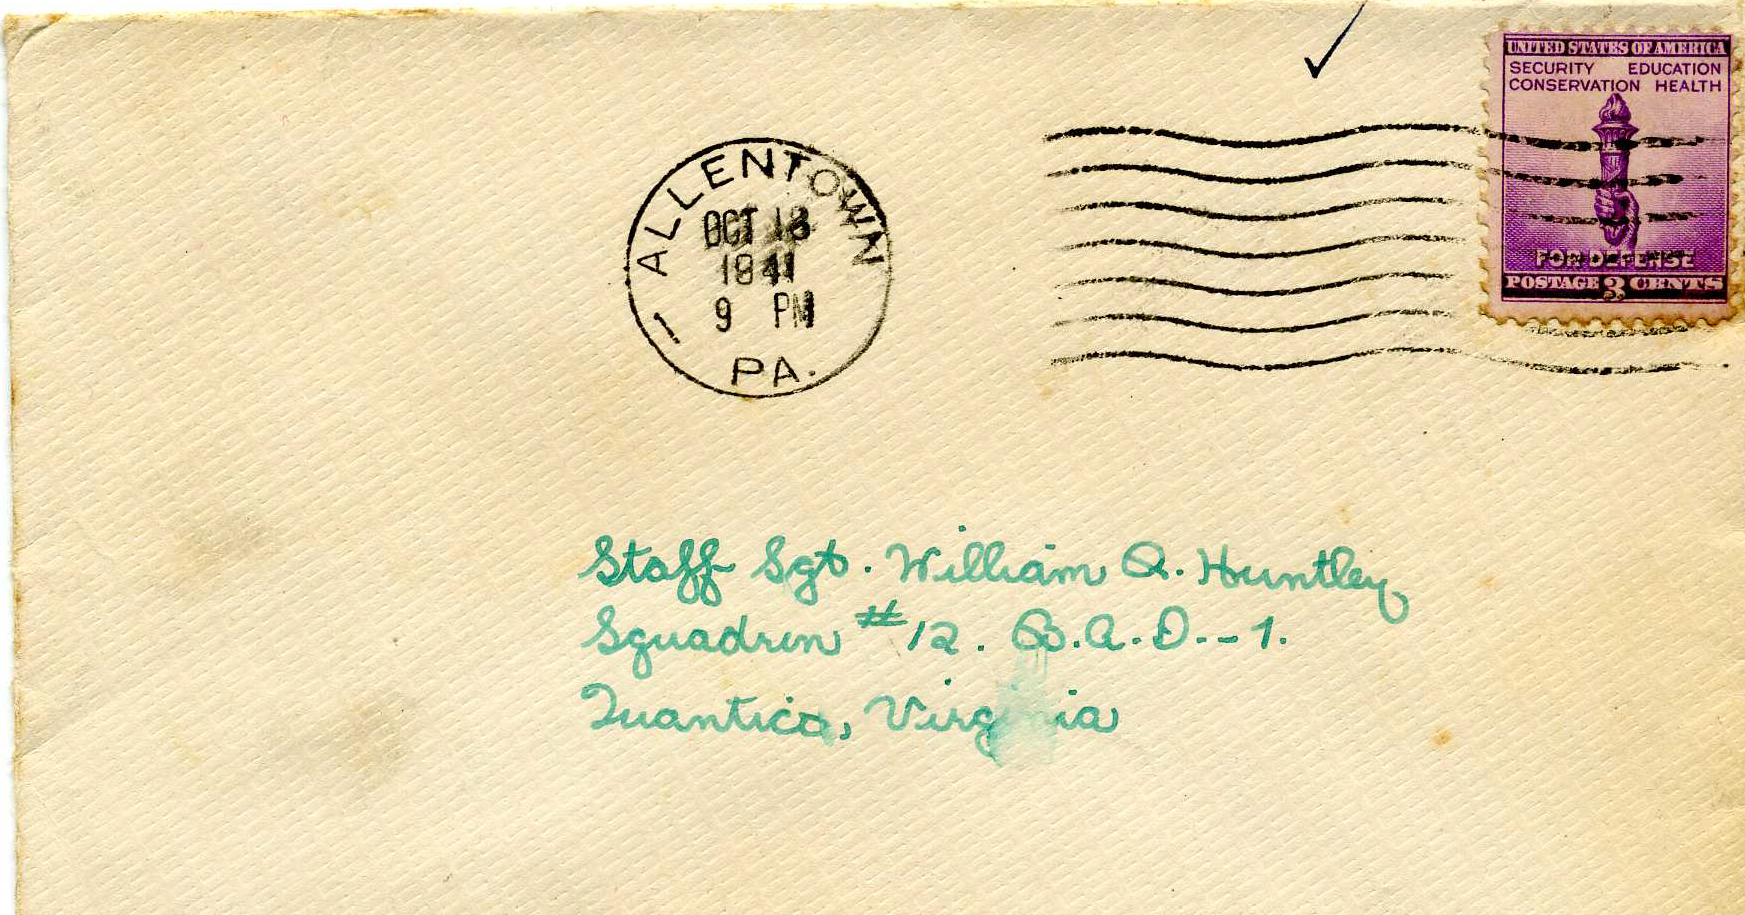 UNITED STATES OF AMERICA
SECURITY EDUCATION
CONSERVATION HEALTH
FOR DEFENSE
POSTAGE 3 CENTS
ALLENTOWN
OCT 13
1941
9 PM
1
PA.
Staff Sgt. William A. Huntley
Squadron #12. B.A.D.-1.
Quantico, Virginia